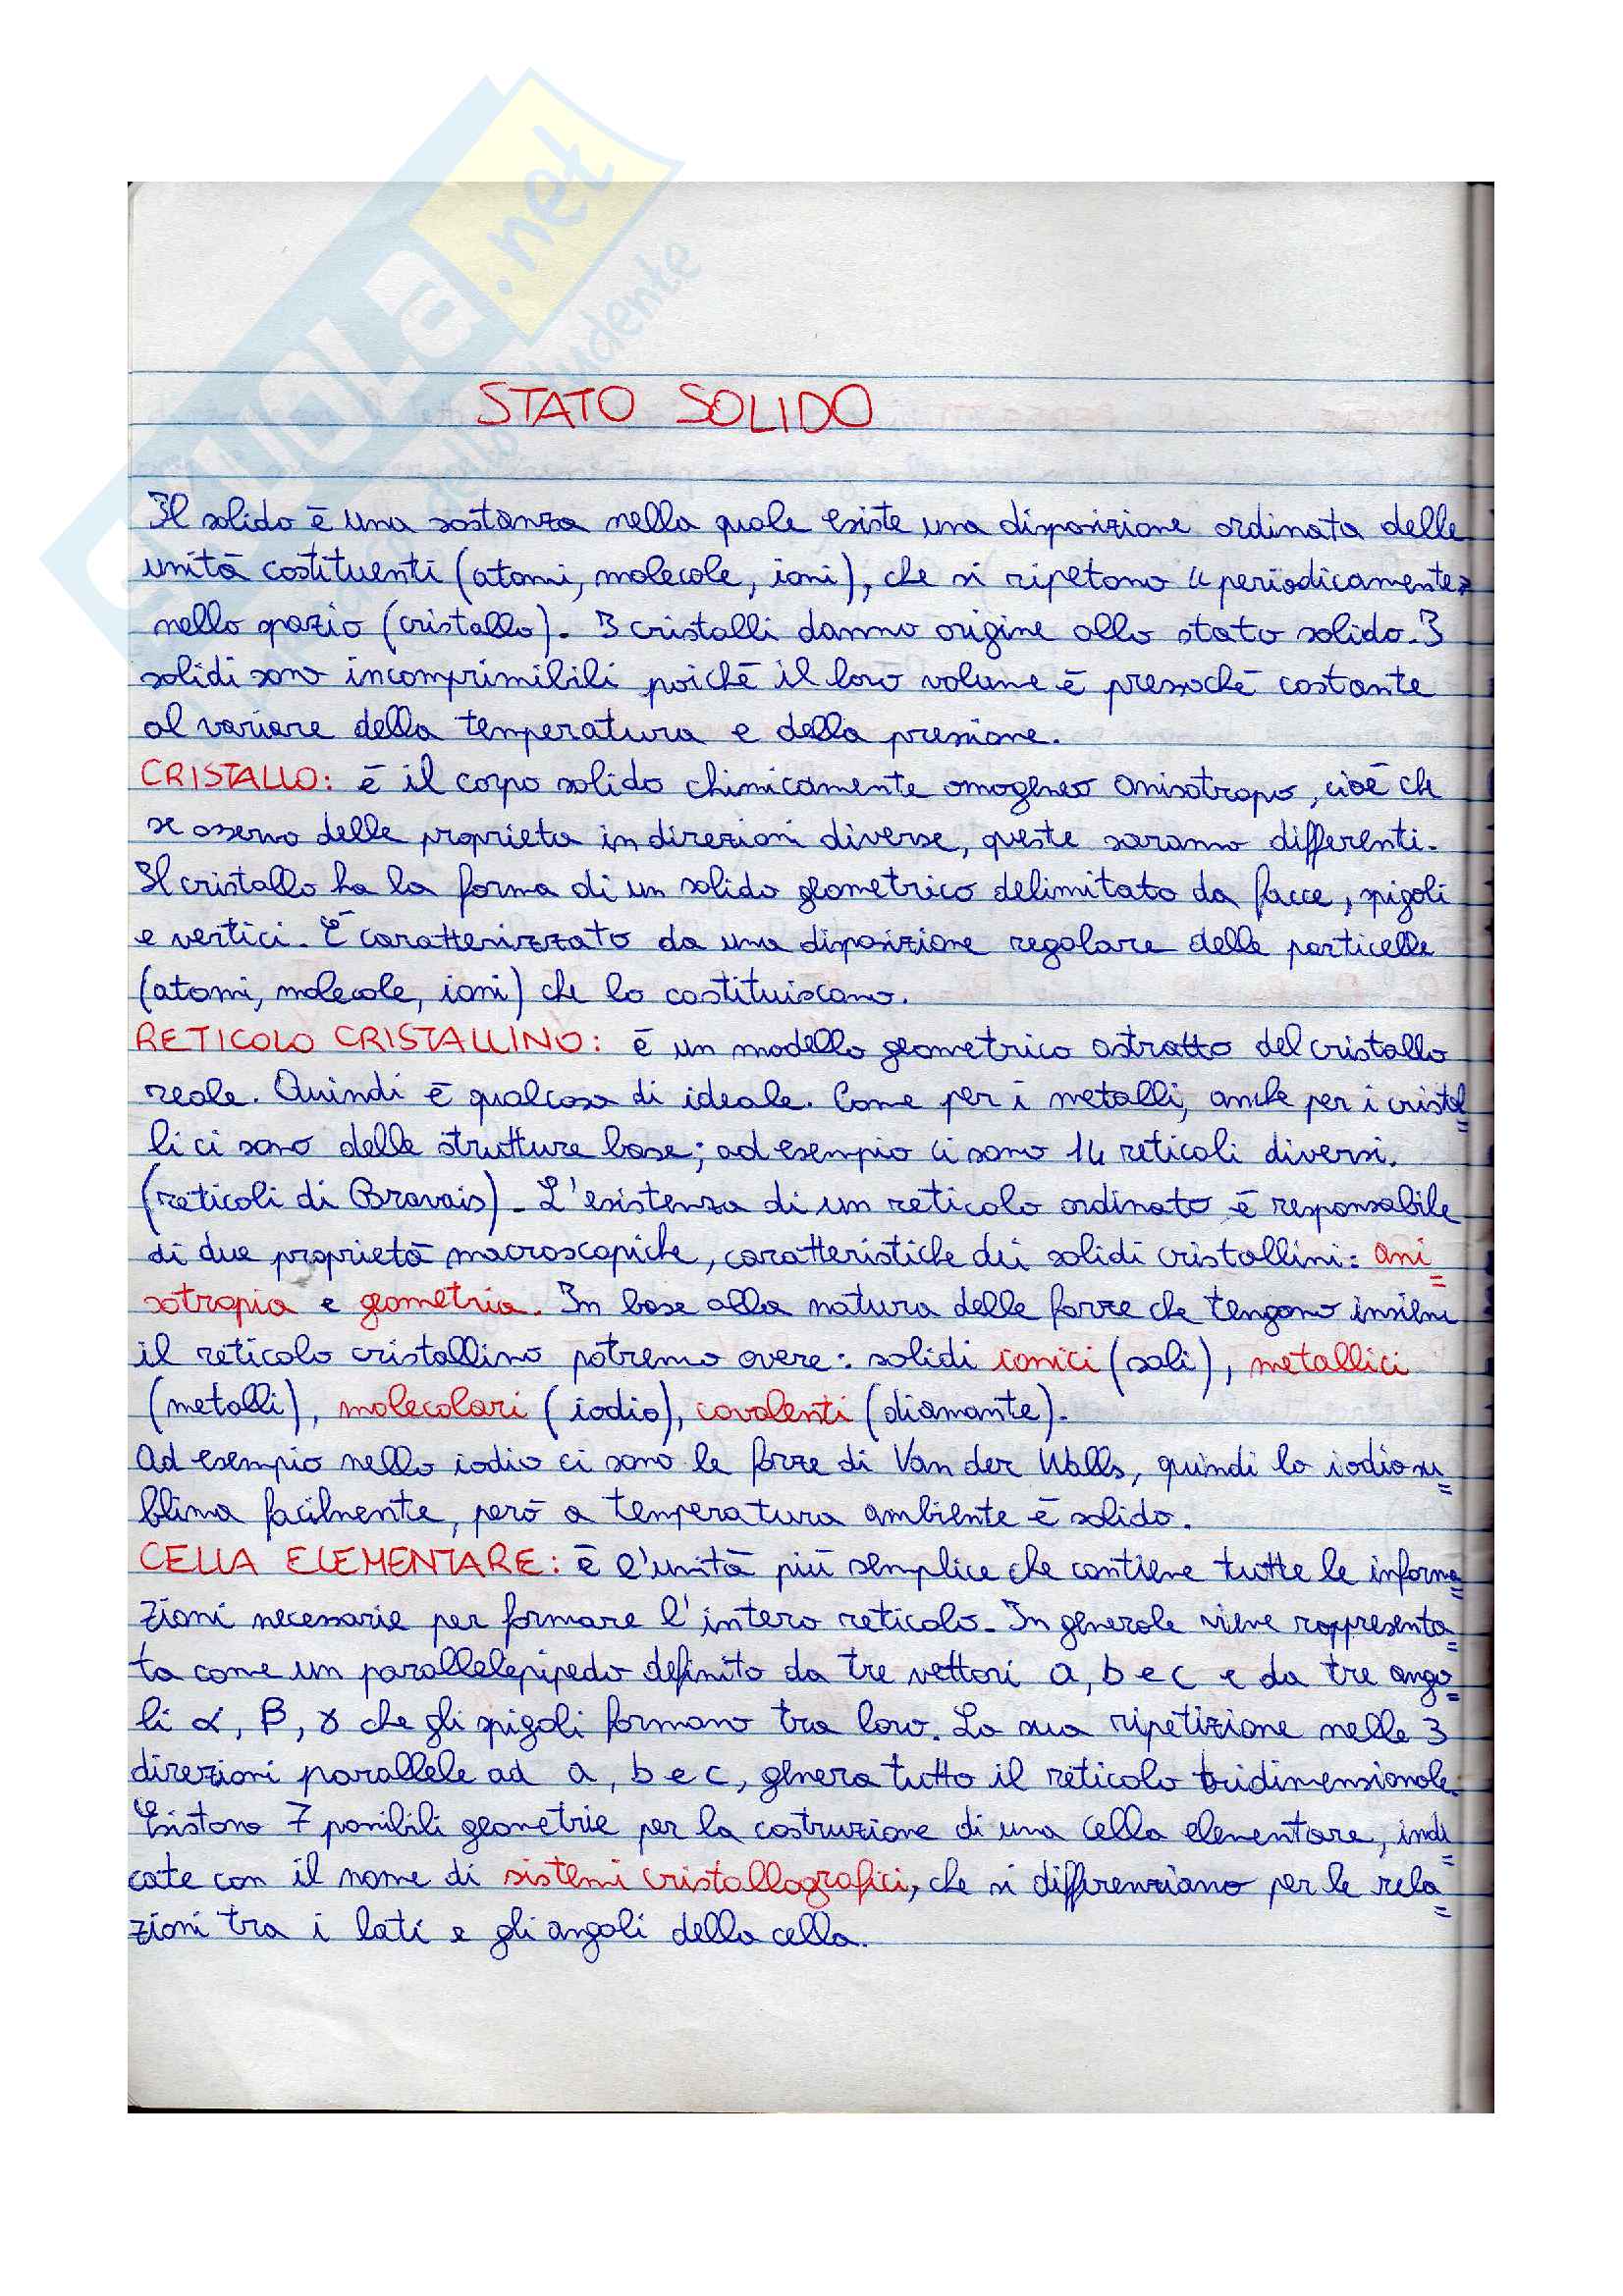 SKUOLA.net
STATO SOLIDO
Il solido è una sostanza nella quale esiste una disposizione ordinata delle
unità costituenti (atomi, molecole, ioni), che si ripetono "periodicamente"
nello spazio (cristallo). I cristalli danno origine allo stato solido. I
solidi sono incomprimibili poichè il loro volume è pressochè costante
al variare della temperatura e della pressione.
CRISTALLO: è il corpo solido chimicamente omogeneo anisotropo, cioè che
se osservo delle proprietà in direzioni diverse, queste saranno differenti.
Il cristallo ha la forma di un solido geometrico delimitato da facce, spigoli
e vertici. È caratterizzato da una disposizione regolare delle particelle
(atomi, molecole, ioni) che lo costituiscono.
RETICOLO CRISTALLINO: è un modello geometrico astratto del cristallo
reale. Quindi è qualcosa di ideale. Come per i metalli, anche per i cristal=
li ci sono delle strutture base; ad esempio ci sono 14 reticoli diversi.
(reticoli di Bravais). L'esistenza di un reticolo ordinato è responsabile
di due proprietà macroscopiche, caratteristiche dei solidi cristallini: ani=
sotropia e geometria. In base alla natura delle forze che tengono insieme
il reticolo cristallino potremo avere: solidi ionici (sali), metallici
(metalli), molecolari (iodio), covalenti (diamante).
Ad esempio nello iodio ci sono le forze di Van der Walls, quindi lo iodio su=
blima facilmente, però a temperatura ambiente è solido.
CELLA ELEMENTARE: è l'unità più semplice che contiene tutte le informa=
zioni necessarie per formare l'intero reticolo. In generale viene rappresenta=
ta come un parallelepipedo definito da tre vettori a, b e c e da tre ango=
li α, β, γ che gli spigoli formano tra loro. La sua ripetizione nelle 3
direzioni parallele ad a, b e c, genera tutto il reticolo tridimensionale.
Esistono 7 possibili geometrie per la costruzione di una cella elementare, indi=
cate con il nome di sistemi cristallografici, che si differenziano per le rela=
zioni tra i lati e gli angoli della cella.